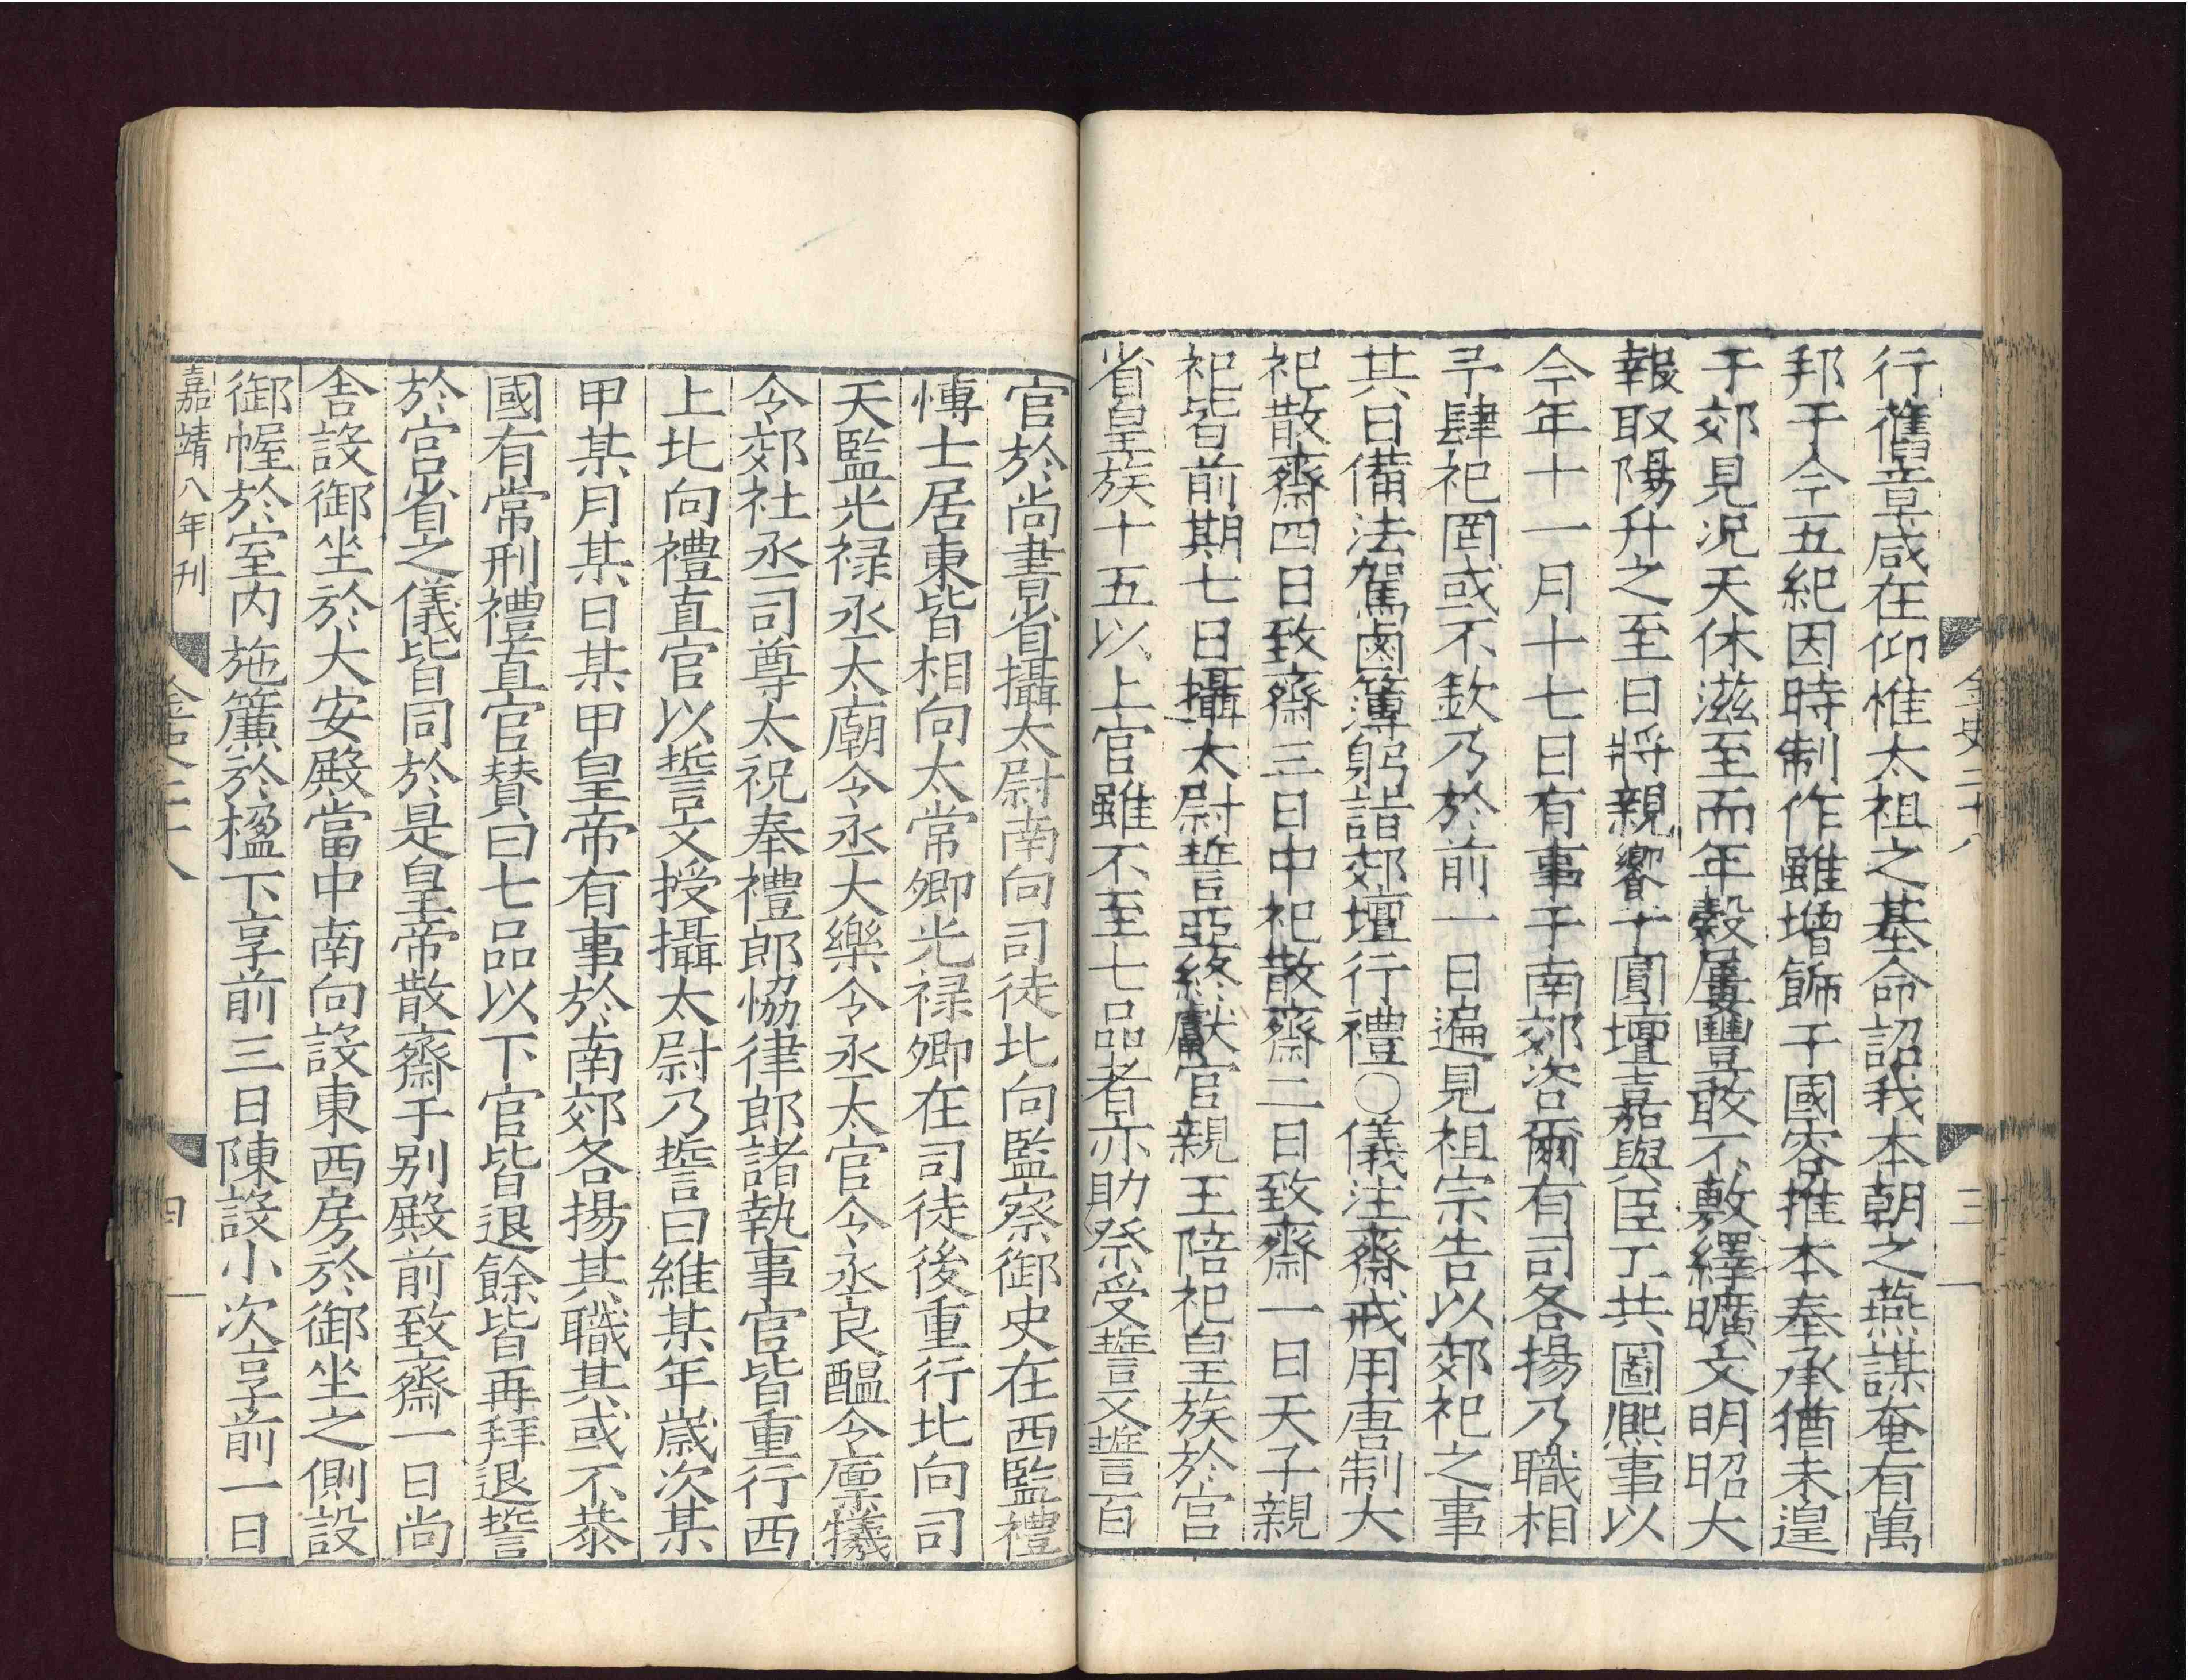 行舊章咸在仰惟太祖之基命詔我本朝之燕謀奄有萬
邦于今五紀因時制作雖增飾于國容推本奉承猶未遑
于郊見況天休滋至而年穀屢豐敢不敷繹曠文明昭大
報取陽升之至日將親饗于圓壇嘉與臣工共圖熙事以
今年十一月十七日有事于南郊咨爾有司各揚乃職相
予肆祀罔或不欽乃於前一日遍見祖宗告以郊祀之事
其日備法駕鹵簿躬詣郊壇行禮○儀注齋戒用唐制大
祀散齋四日致齋三日中祀散齋二日致齋一日天子親
祀皆前期七日攝太尉誓亞終獻官親王陪祀皇族於宮
省皇族十五以上官雖不至七品者亦助祭受誓文誓百
金史二十八
三
官於尚書省攝太尉南向司徒北向監察御史在西監禮
博士居東皆相向太常卿光祿卿在司徒後重行北向司
天監光祿丞太廟令丞大樂令丞太官令丞良醞令廩犧
令郊社丞司尊太祝奉禮郎協律郎諸執事官皆重行西
上北向禮直官以誓文授攝太尉乃誓曰維某年歲次某
甲某月某日某甲皇帝有事於南郊各揚其職其或不恭
國有常刑禮直官贊曰七品以下官皆退餘皆再拜退誓
於宮省之儀皆同於是皇帝散齋于别殿前致齋一日尚
舍設御坐於大安殿當中南向設東西房於御坐之側設
御幄於室内施簾於楹下享前三日陳設小次享前一日
嘉靖八年刊
金史二十八
四